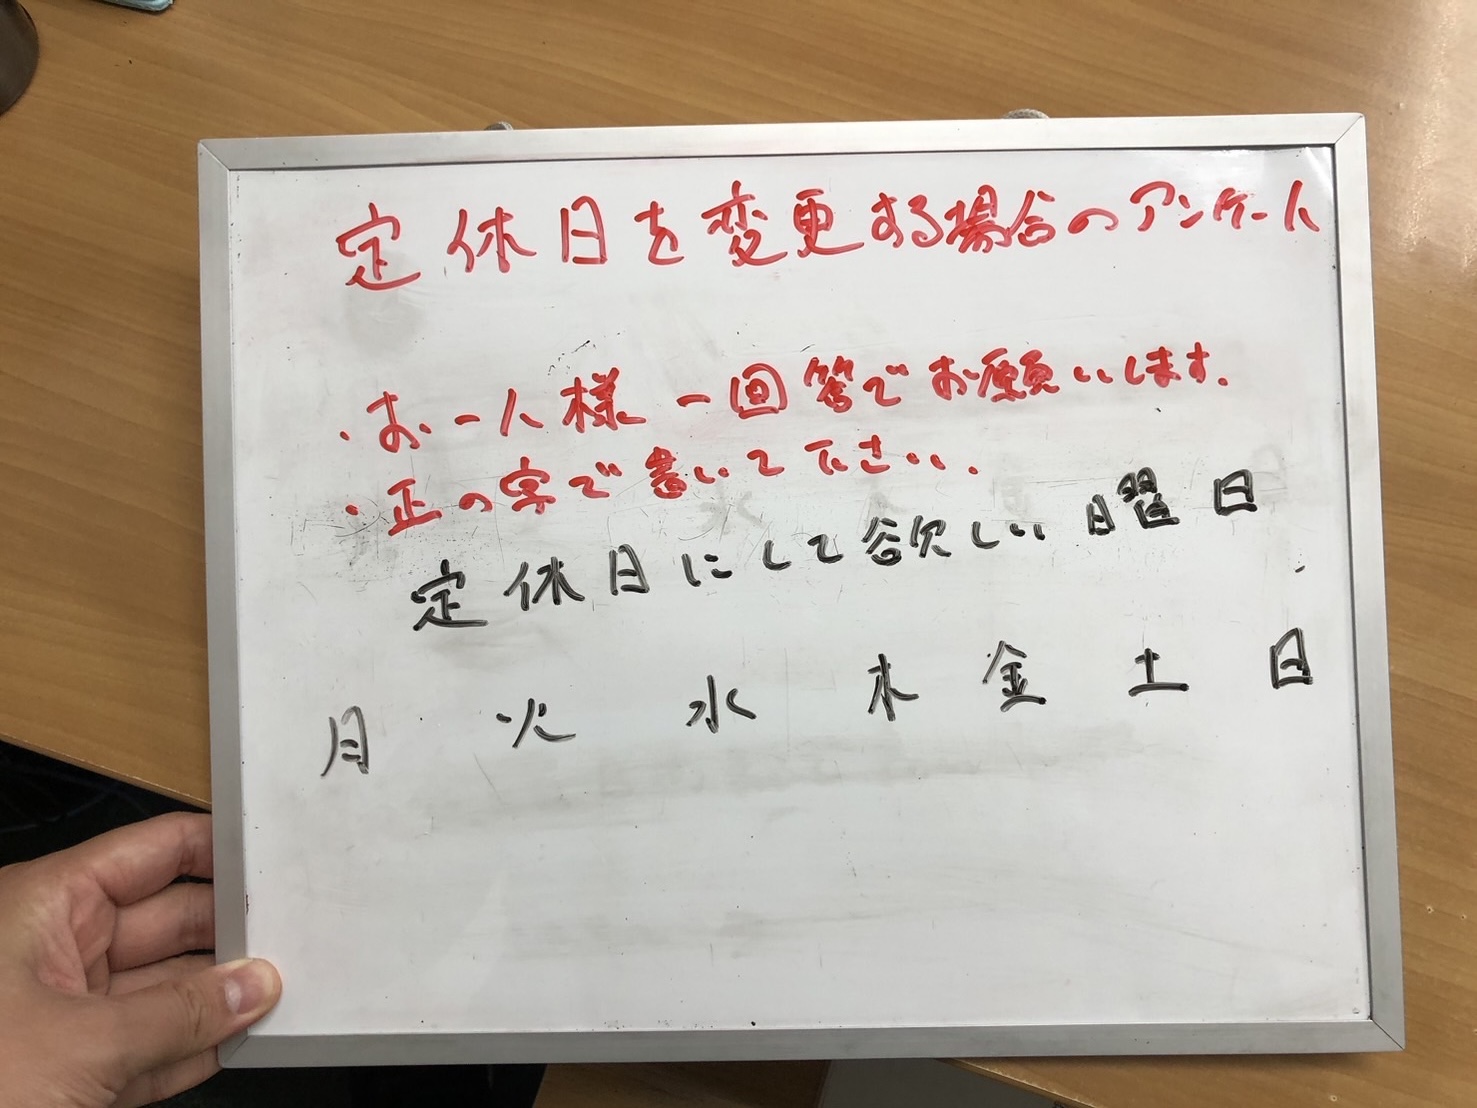 定休日を変更する場合のアンケート
・お一人様一回答でお願いします.
・正の字で書いて下さい.
定休日にして欲しい曜日
月 火 水 木 金 土 日